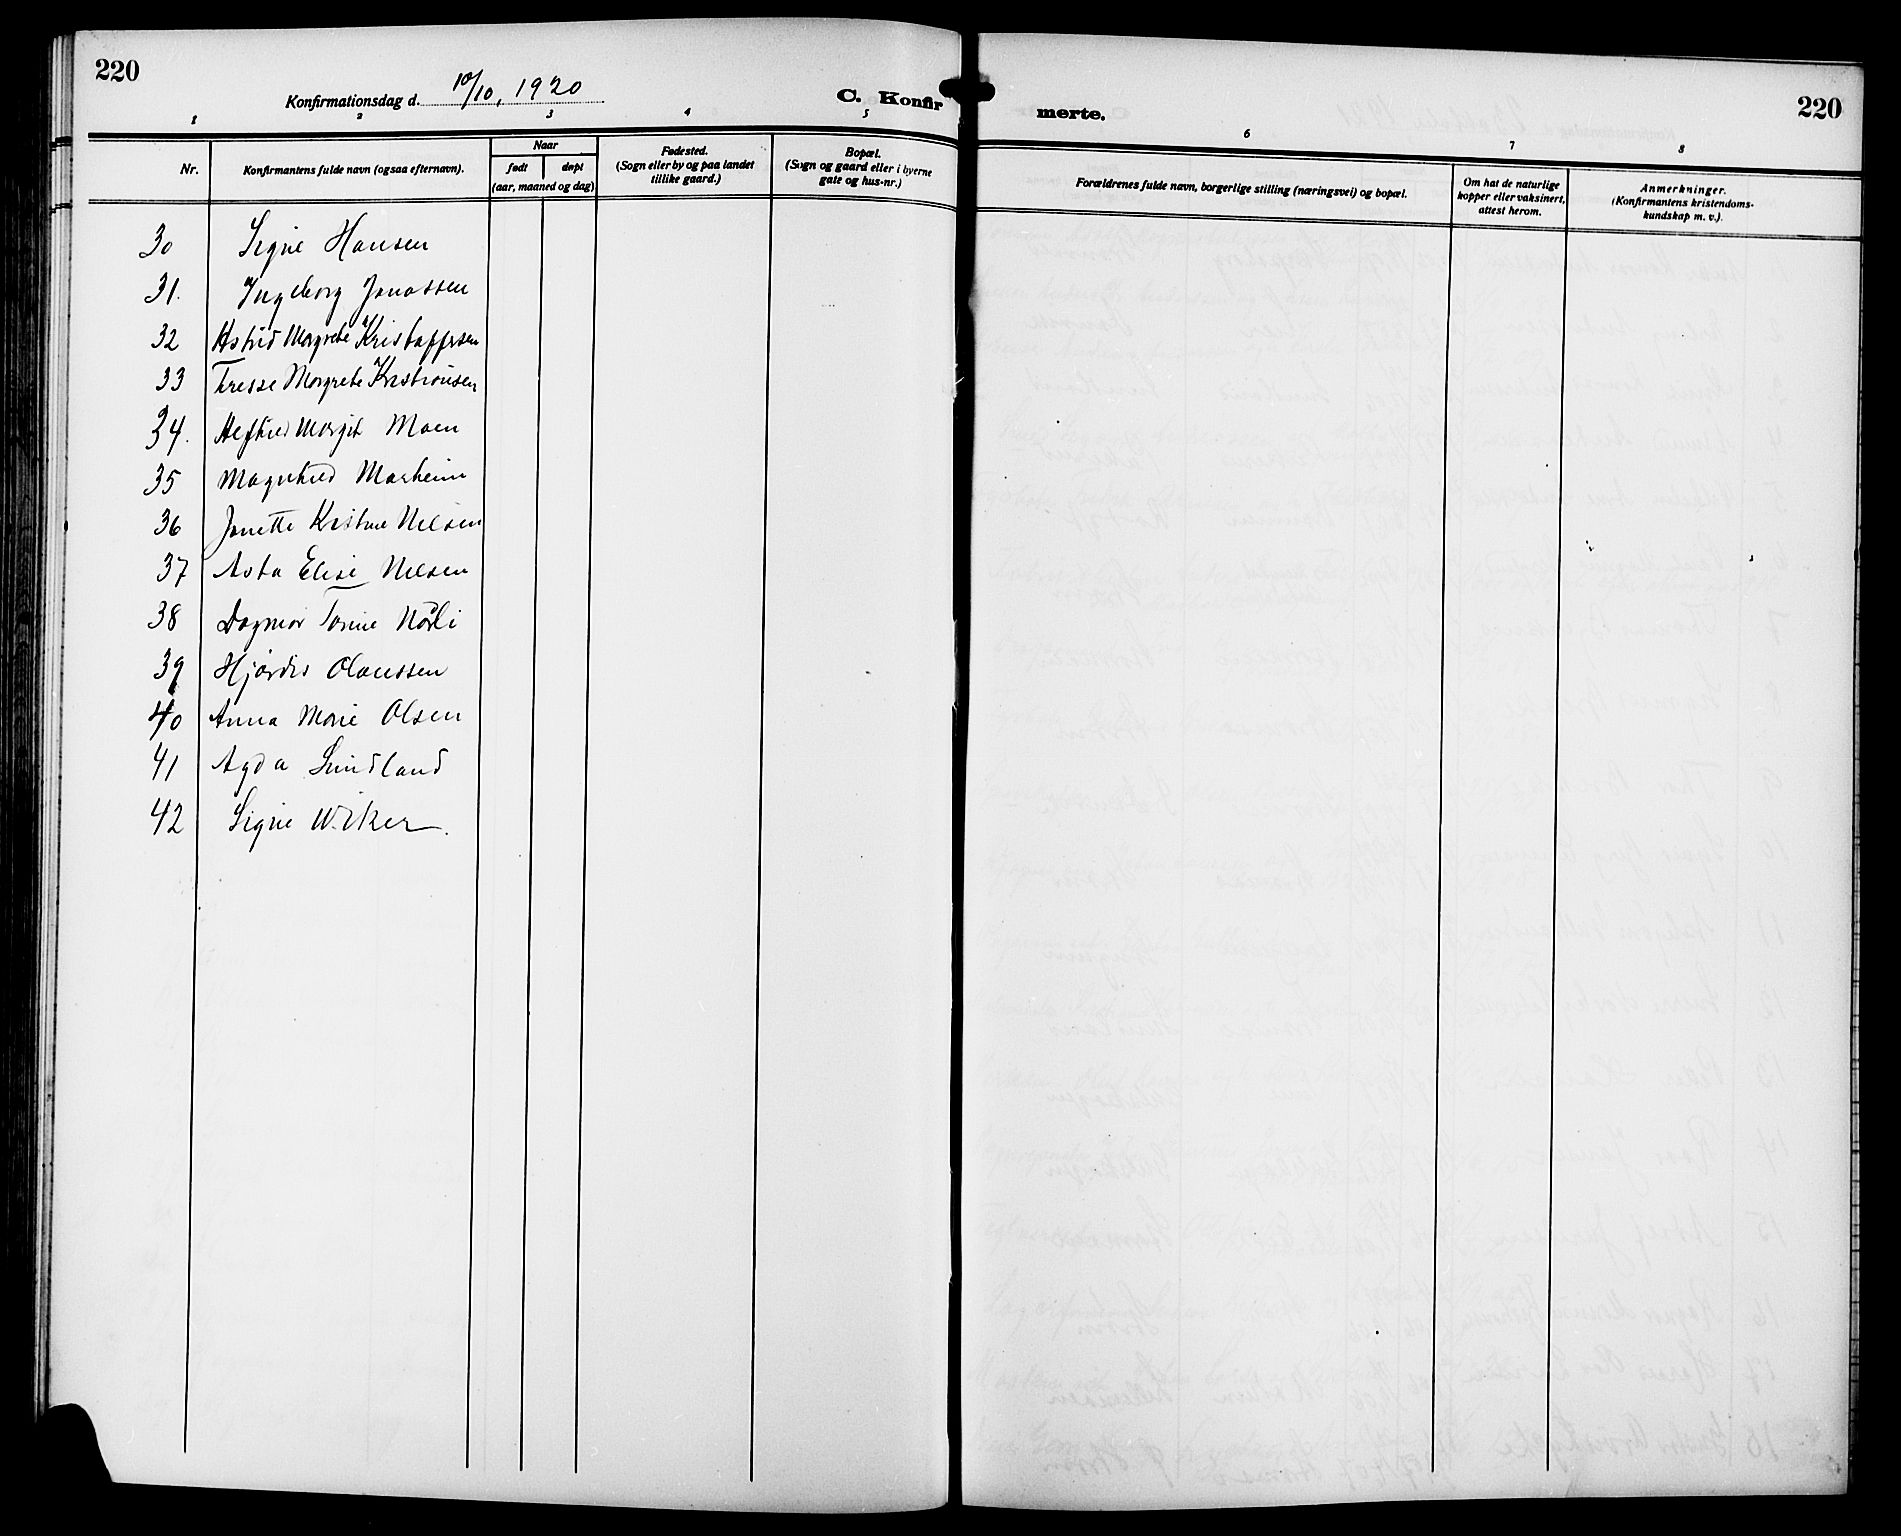 220
Konfirmationsdag d. 10/10, 1920
C. Konfir
merte.
220
1 2 3 4 5 6 7 8
Nr.
Konfirmantens fulde navn (ogsaa efternavn).
Naar
født døpt
(aar, maaned og dag)
Fødested.
(Sogn eller by og paa landet
tillike gaard.)
Bopæl.
(Sogn og gaard eller i byerne
gate og hus-nr.)
Forældrenes fulde navn, borgerlige stilling (næringsvei) og bopæl.
Om hat de naturlige
kopper eller vaksinert,
attest herom.
Anmerkninger.
(Konfirmantens kristendoms-
kundskap m. v.).
30 Signe Hansen
31. Ingeborg Jonassen
32 Astrid Margrethe Kristoffersen
33 Terese Margrete Kristiansen
34. Margit Moen
35 Magnhild Marheim
36 Janette Kristine Nilsen
37 Asta Elise Nilsen
38 Dagmar Tomine Nörli
39 Hjördis Olaussen
40 Anna Marie Olsen
41 Agda Sundland
42 Signe Wiker.